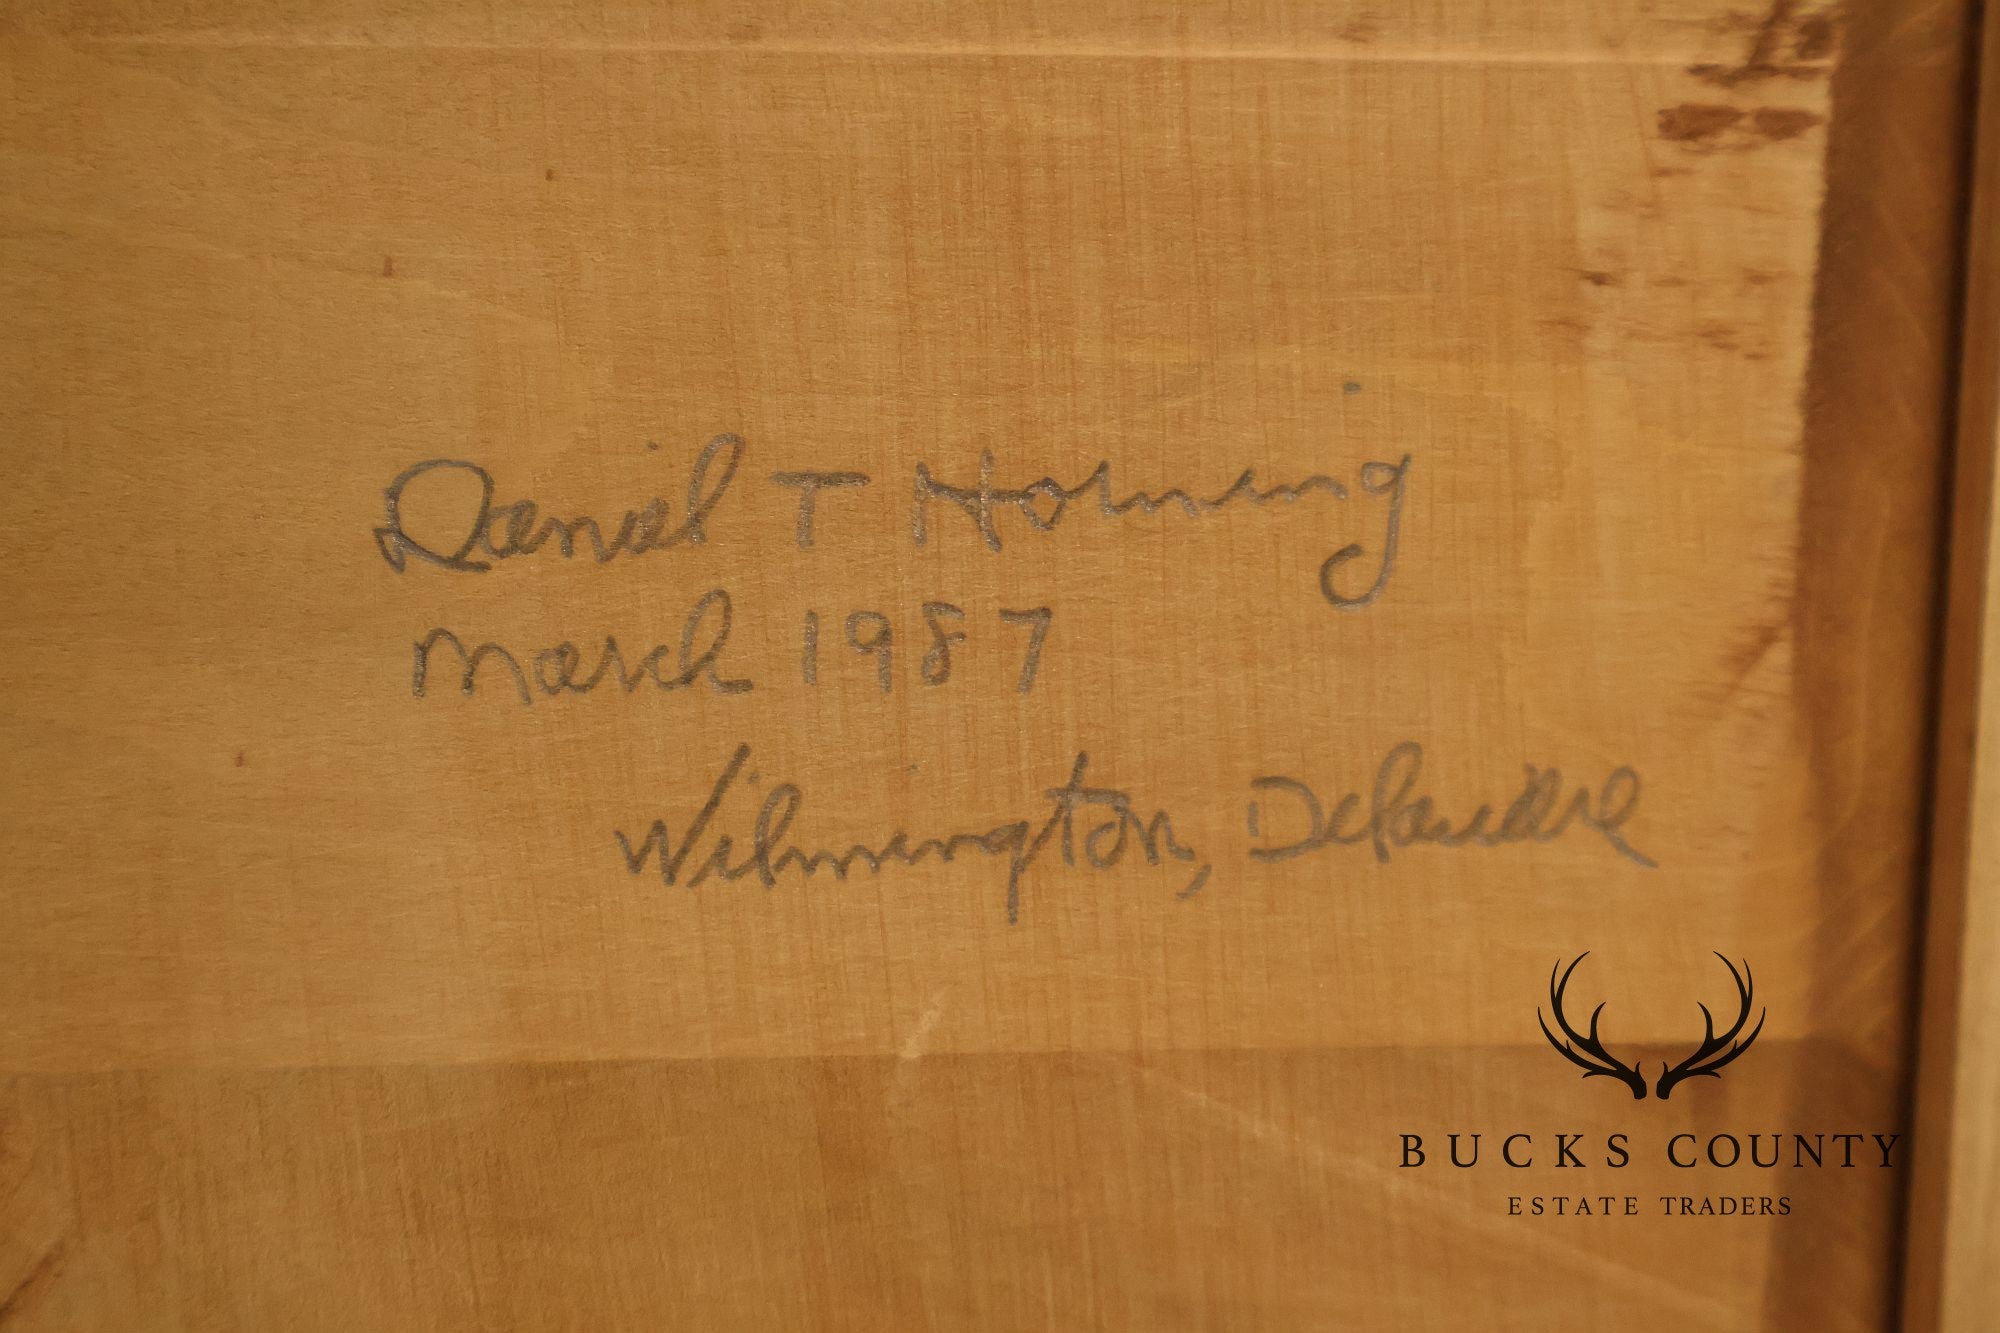 Daniel T Horning
March 1987
Wilmington, Delaware
BUCKS COUNTY
ESTATE TRADERS